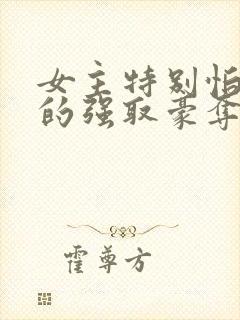 女主特别怕
的强取豪夺
霍尊方